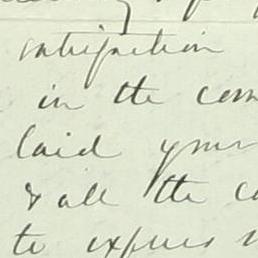 satisfaction
in the com
laid your
& all the co
to express